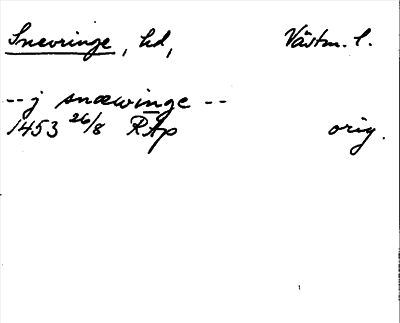 Snevringe, hd, Västm. l.
-- j snæwinge --
1453 26/8 RAp orig.